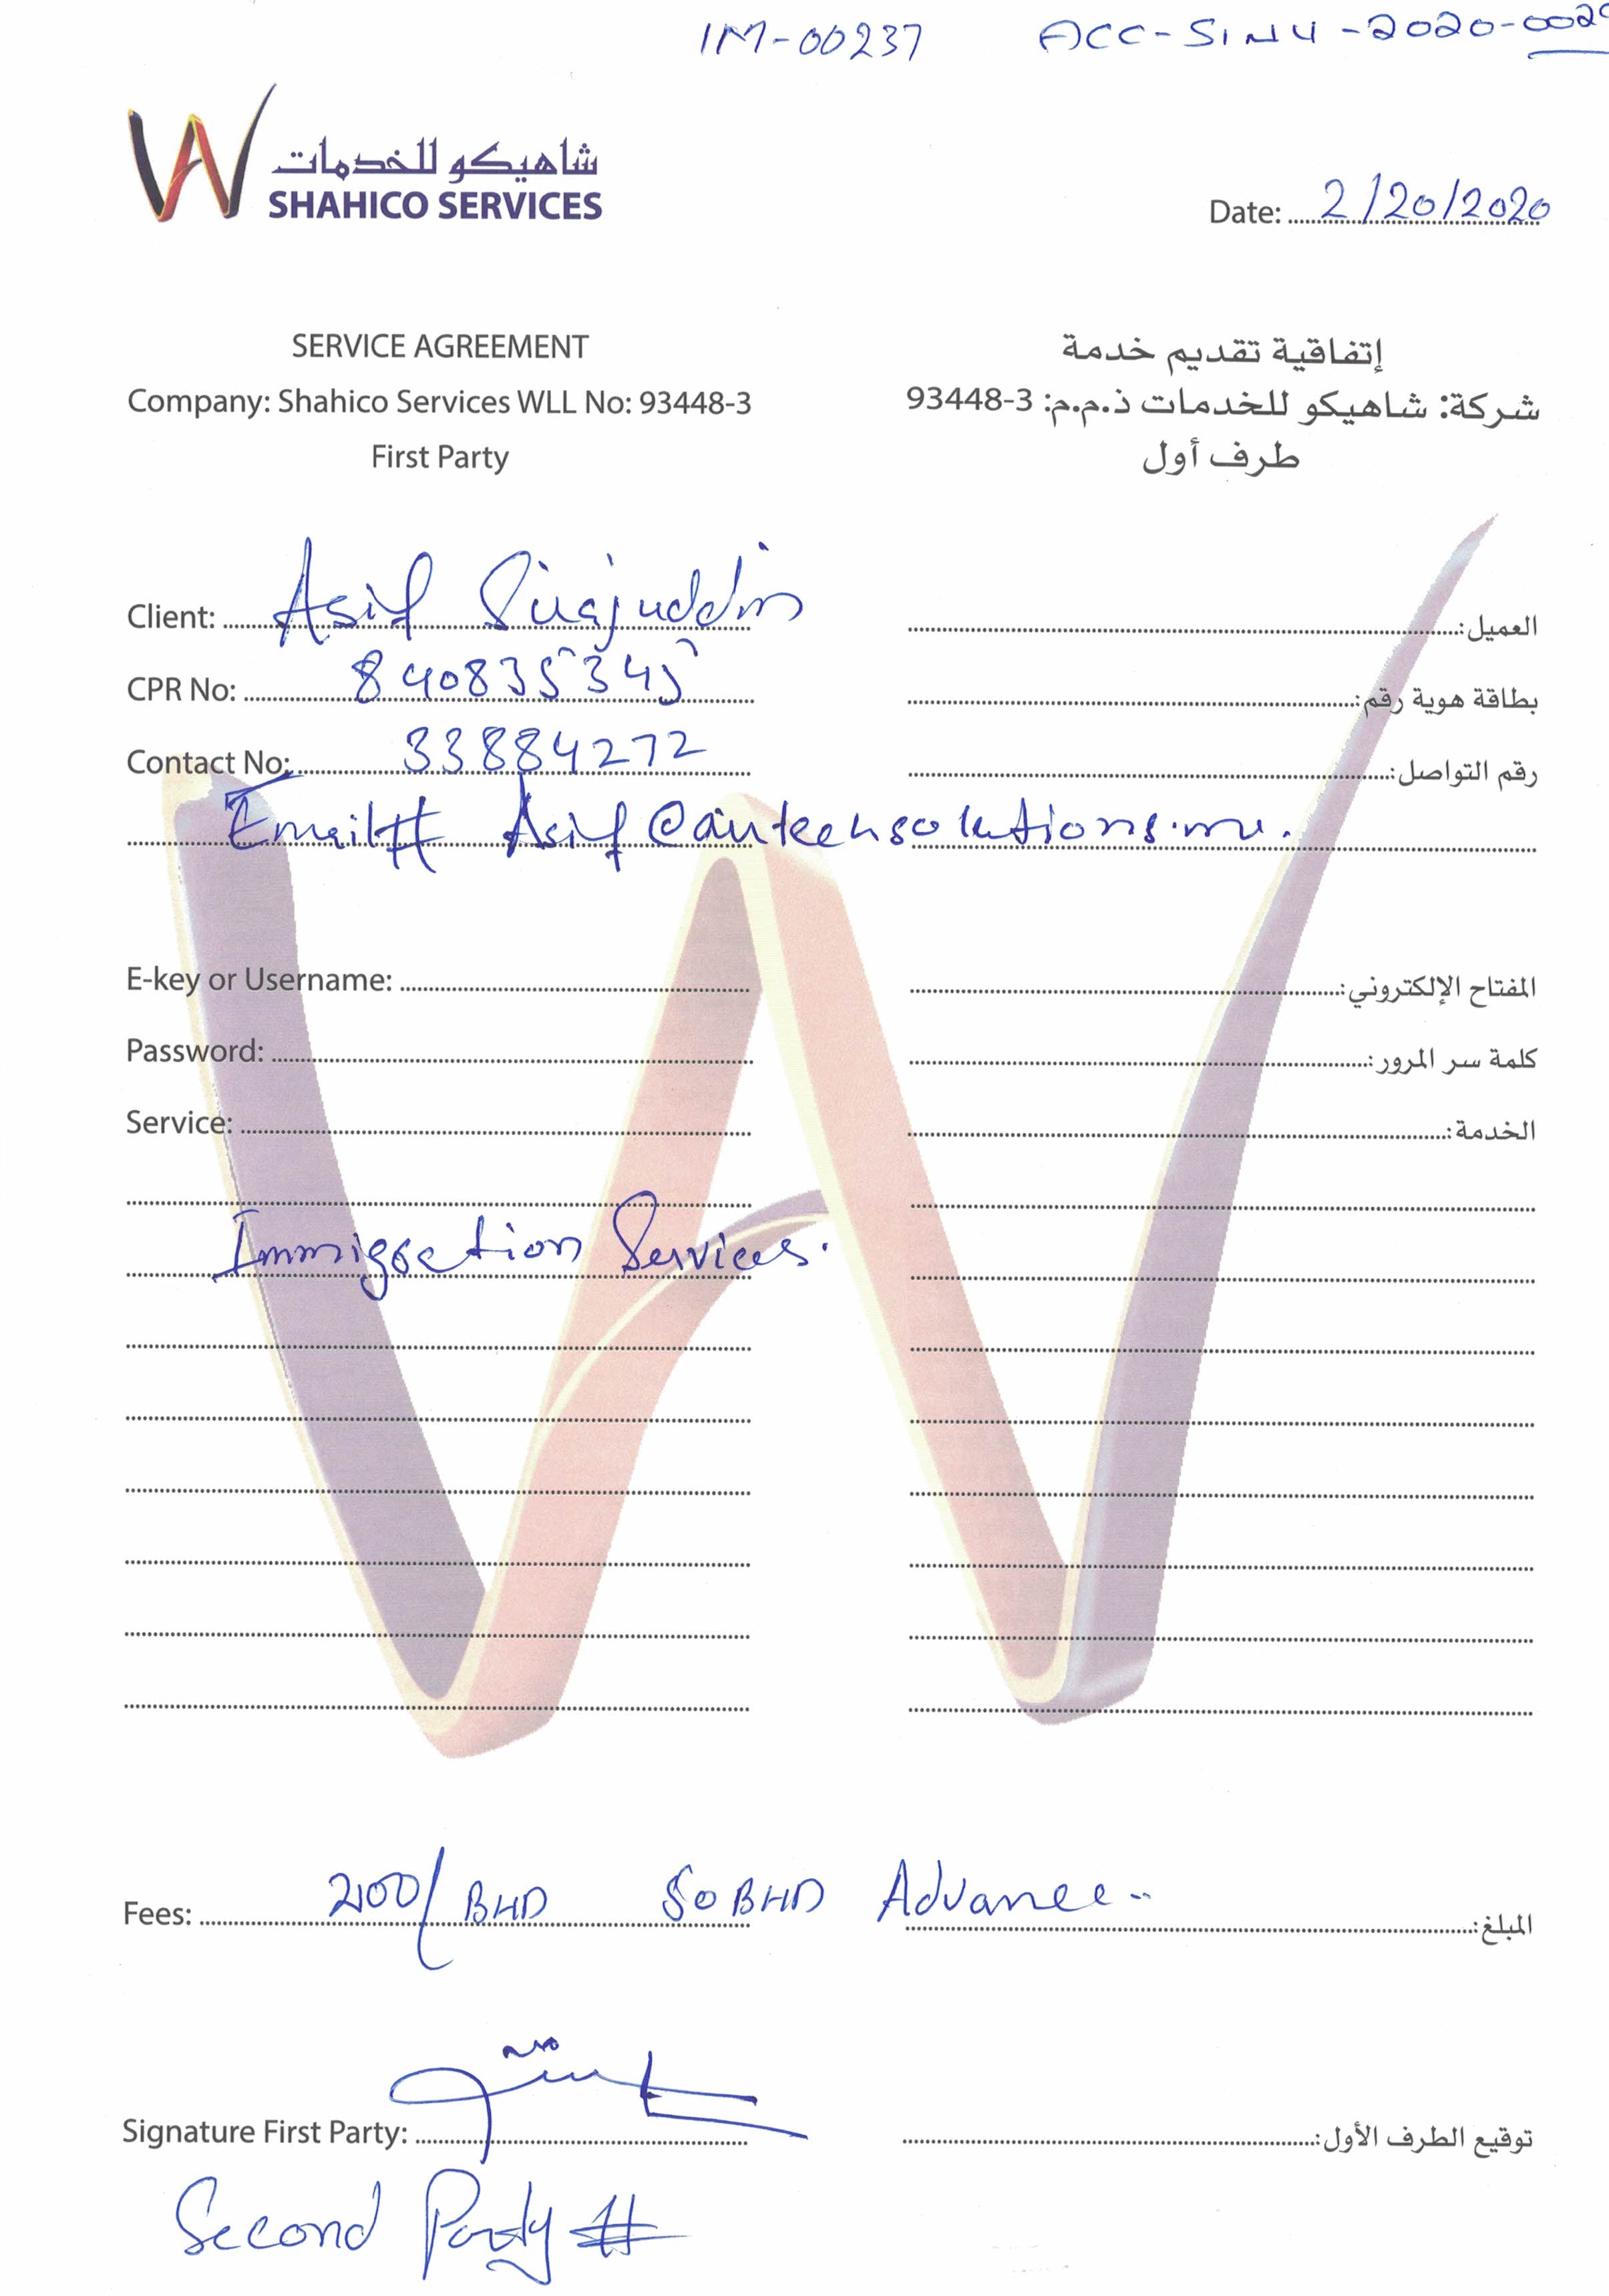 IM-00237 ACC-SINV-2020-002
شاهيكو للخدمات
SHAHICO SERVICES
Date: 2/20/2020
SERVICE AGREEMENT
إتفاقية تقديم خدمة
Company: Shahico Services WLL No: 93448-3
شركة: شاهيكو للخدمات ذ.م.م: 3-93448
First Party
طرف أول
Client: Asif Sirajuddin
العميل:
CPR No: 840835345
بطاقة هوية رقم:
Contact No: 33884272
رقم التواصل:
Email# Asif@
E-key or Username:
المفتاح الإلكتروني:
Password:
كلمة سر المرور:
Service:
الخدمة:
Immigration Services.
Fees: 200/ BHD 50 BHD Advance
المبلغ:
Signature First Party:
توقيع الطرف الأول:
Second Party #